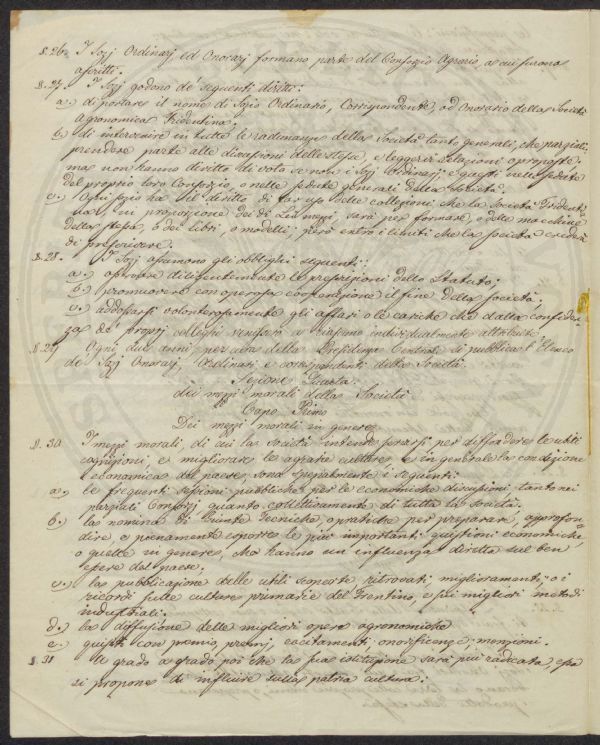 §. 26. I Sozj Ordinarj, ed Onorarj formano parte del Consorzio Agrario, a cui furono
ascritti.
§. 27. I Sozj godono de' seguenti diritti:
a.) di portare il nome di Sozio Ordinario, Corrispondente, od Onorario della Società
Agronomica Tridentina;
b.) di intervenire in tutte le radunanze della Società tanto generali, che parziali,
prendere parte alle discussioni della stessa, e leggervi relazioni o proposte:
ma non hanno diritto di voto se non i Sozj Ordinarj: e questi nelle sedute
del proprio loro Consorzio, o nelle sedute generali della Società.
c.) Ogni sozio ha il diritto di far uso delle collezioni che la Società Tridenti=
na, in proporzione dei di Lei mezzi, sarà per formare, o delle macchine
della stessa, o dei libri, o modelli; però entro i limiti che la società crederà
di prescrivere.
§. 28. I Sozj assumono gli obblighi seguenti:
a.) osservare diligentemente le prescrizioni dello Statuto;
b.) promuovere con operosa cooperazione il fine della società;
c.) addossarsi volonterosamente gli affari o le cariche che dalla confiden=
za de' proprj colleghi venissero a ciascuno individualmente attribuite.
§. 29 Ogni due anni per cura della Presidenza Centrale si pubblica l'Elenco
de' Sozj Onorarj, Ordinari e corrispondenti della Società.
Sezione Quarta
dei mezzi morali della Società
Capo Primo
Dei mezzi morali in genere
§. 30 I mezzi morali, di cui la Società intende servirsi per diffondere le utili
cognizioni, e migliorare le agrarie culture, e in generale la condizione
economica del paese, sono specialmente i seguenti:
a.) le frequenti sessioni pubbliche per le economiche discussioni tanto nei
parziali Consorzj, quanto collettivamente di tutta la Società.
b.) la nomina di Giunte Tecniche, o pratiche per preparare, approfon=
dire, o pienamente esporre le più importanti quistioni economiche,
o quelle in genere, che hanno un influenza diretta sul ben
essere del paese.
c.) la pubblicazione delle utili scoperte, ritrovati, miglioramenti, o i
ricordi sulle culture primarie del Trentino, e sui migliori metodi
industriali.
d.) la diffusione delle migliori opere agronomiche
e.) quisiti con premio, premj, eccitamenti, onorificenze, menzioni.
§. 31 Di grado a grado poi che la sua istituzione sarà più radicata, essa
si propone di influire sulla patria cultura: